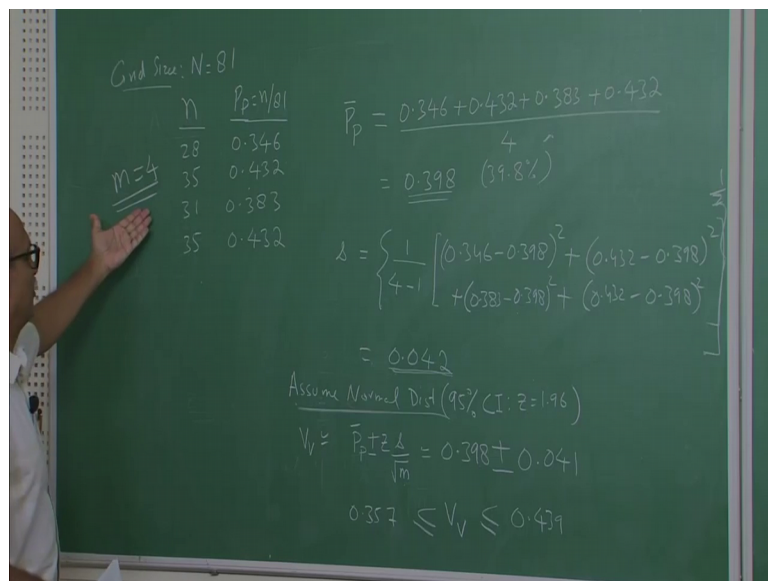 Grid Size: N=81
n P_p=n/81
28 0.346
35 0.432
31 0.383
35 0.432
m=4
P̄_p = (0.346+0.432+0.383+0.432)/4
= 0.398 (39.8%)
s = {1/(4-1) [(0.346-0.398)² + (0.432-0.398)²
+(0.383-0.398)² + (0.432-0.398)²]}^½
= 0.042
Assume Normal Dist (95% CI: z=1.96)
V_v ≃ P̄_p ± z s/√m = 0.398 ± 0.041
0.357 ≤ V_v ≤ 0.439